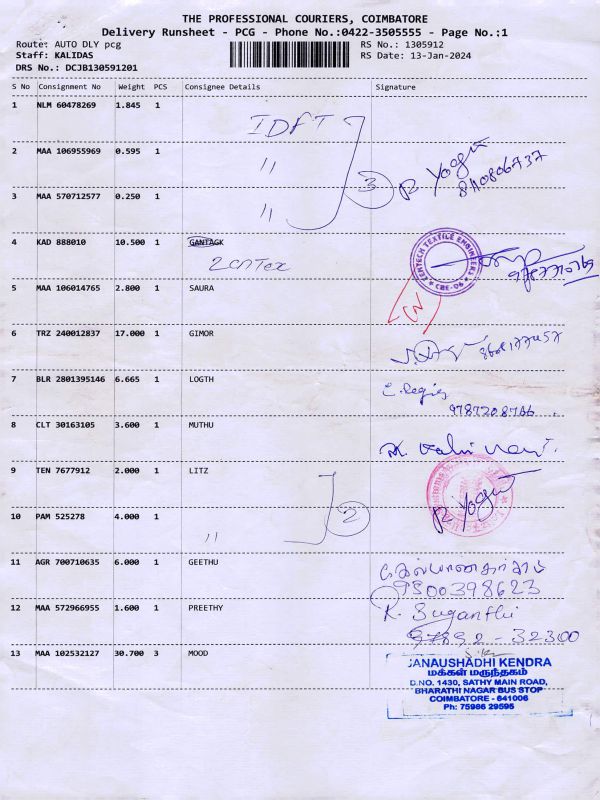 THE PROFESSIONAL COURIERS, COIMBATORE
Delivery Runsheet - PCG - Phone No.:0422-3505555 - Page No.:1
Route: AUTO DLY pcg RS No.: 1305912
Staff: KALIDAS RS Date: 13-Jan-2024
DRS No.: DCJB130591201
S No Consignment No Weight PCS Consignee Details Signature
1 NLM 60478269 1.845 1
IDFT
2 MAA 106955969 0.595 1 "
3 R Yogu
3 MAA 570712577 0.250 1 "
4 KAD 888010 10.500 1 GANTAGK
2cnTex
CENTECH TEXTILE ENGINEERS
CBE-06
5 MAA 106014765 2.800 1 SAURA
CN
6 TRZ 240012837 17.000 1 GIMOR
7 BLR 2801395146 6.665 1 LOGTH
9787208766
8 CLT 30163105 3.600 1 MUTHU
9 TEN 7677912 2.000 1 LITZ
2 R Yogu
10 PAM 525278 4.000 1
"
11 AGR 700710635 6.000 1 GEETHU
9500398623
12 MAA 572966955 1.600 1 PREETHY R. Suganthi
97892-32300
13 MAA 102532127 30.700 3 MOOD
JANAUSHADHI KENDRA
மக்கள் மருந்தகம்
D.NO. 1430, SATHY MAIN ROAD,
BHARATHI NAGAR BUS STOP
COIMBATORE - 641006
Ph: 75986 29595